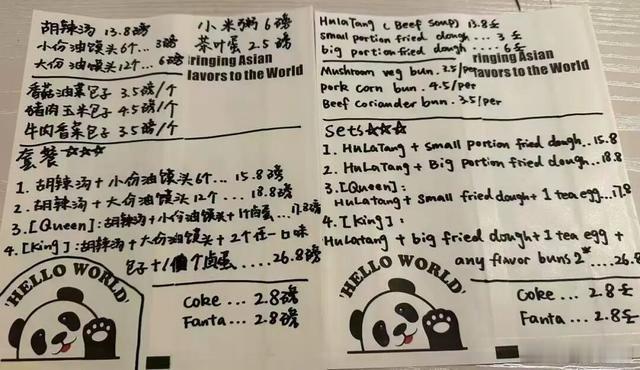 胡辣汤 13.8磅
小份油馒头6个... 3磅
大份油馒头12个... 6磅
小米粥 6磅
茶叶蛋 2.5磅
ringing Asian
lavors to the World
香菇油菜包子 3.5磅/个
猪肉玉米包子 4.5磅/个
牛肉香菜包子 3.5磅/个
套餐☆☆☆
1. 胡辣汤+小份油馒头6个... 15.8磅
2. 胡辣汤+大份油馒头12个... 18.8磅
3.[Queen]:胡辣汤+小份油馒头+1个卤蛋...17.8磅
4.[King]:胡辣汤+大份油馒头+2个任一口味
包子+1個个卤蛋.....26.8磅
'HELLO WORLD'
Coke ... 2.8磅
Fanta ... 2.8磅
HuLaTang ( Beef Soup) 13.8
small portion fried dough.... 3
big portion fried dough ..... 6
ringing Asian
lavors to the World
Mushroom veg bun. 3.5/per
pork corn bun . 4.5/per
Beef Coriander bun . 3.5/per
Sets☆☆☆
1. HuLaTang + small portion fried dough.. 15.8
2. HuLaTang + Big portion fried dough...18.8
3.[Queen]:
HuLatang + small fried dough + 1 tea egg...17.8
4.[King]:
HuLatang + big fried dough + 1 tea egg +
any flavor buns 2* ...26.8
'HELLO WORLD'
Coke ... 2.8
Fanta ... 2.8